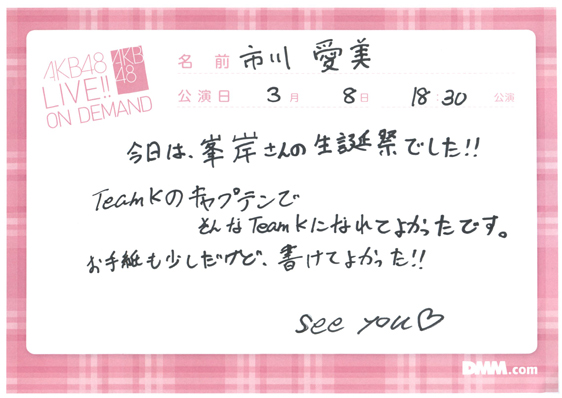 AKB48
LIVE!!
ON DEMAND
AKB
48
名前 市川 愛美
公演日 3月 8日 18:30 公演
今日は、峯岸さんの生誕祭でした!!
TeamKのキャプテンで
そんなTeamKになれてよかったです。
お手紙も少しだけど、書けてよかった!!
see you♡
DMM.com